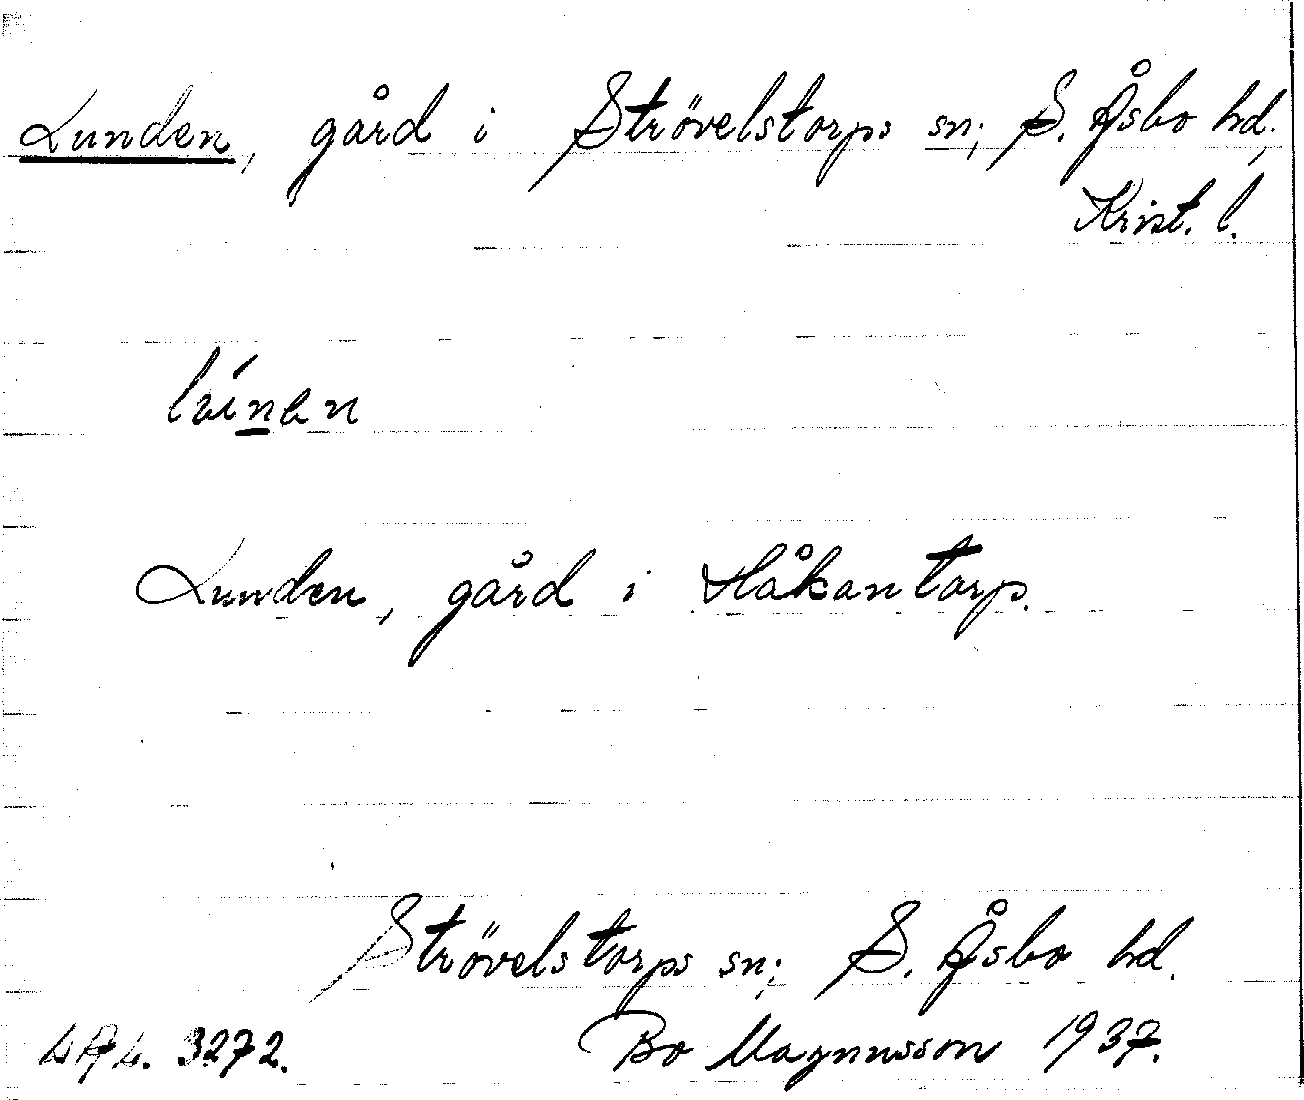 Lunden, gård i Strövelstorps sn; S. Åsbo hd;
Krist. l.
Lunden, gård i Håkantorp.
Strövelstorps sn; S. Åsbo hd.
LAL. 3272. Bo Magnusson 1937.